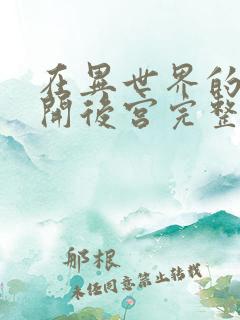 在異世界的
開後宮完整
那根
未經同意禁止轉載